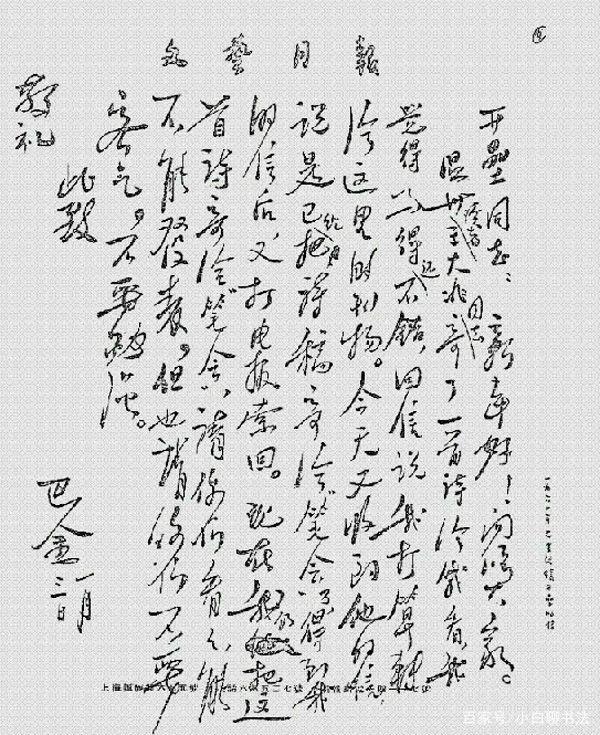 文藝月報
开垒同志:新年好!问候大家。
温州读者王大兆同志寄了一首诗给我看,我
觉得写得还不错,回信说我打算转
给这里的刊物。今天又收到他的信,
说是已把诗稿寄给笔会了。得到我
的信后,又打电报索回。现在我仍把这
首诗寄给笔会,请你们看看,能
不能发表,但也请你们不要
客气,不要勉强。
此致
敬礼
巴金
一月
三日
百家号/小白聊书法